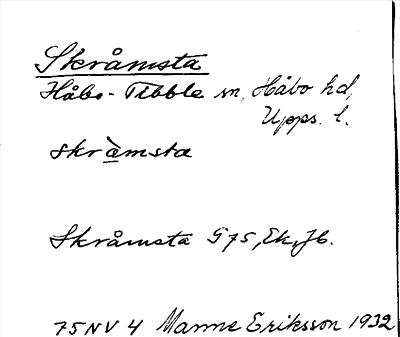 Skråmsta
Håbo-Tibble sn, Håbo hd,
Upps. l.
skràmsta
Skråmsta G75, Ek, Jb.
75NV4 Manne Eriksson 1932